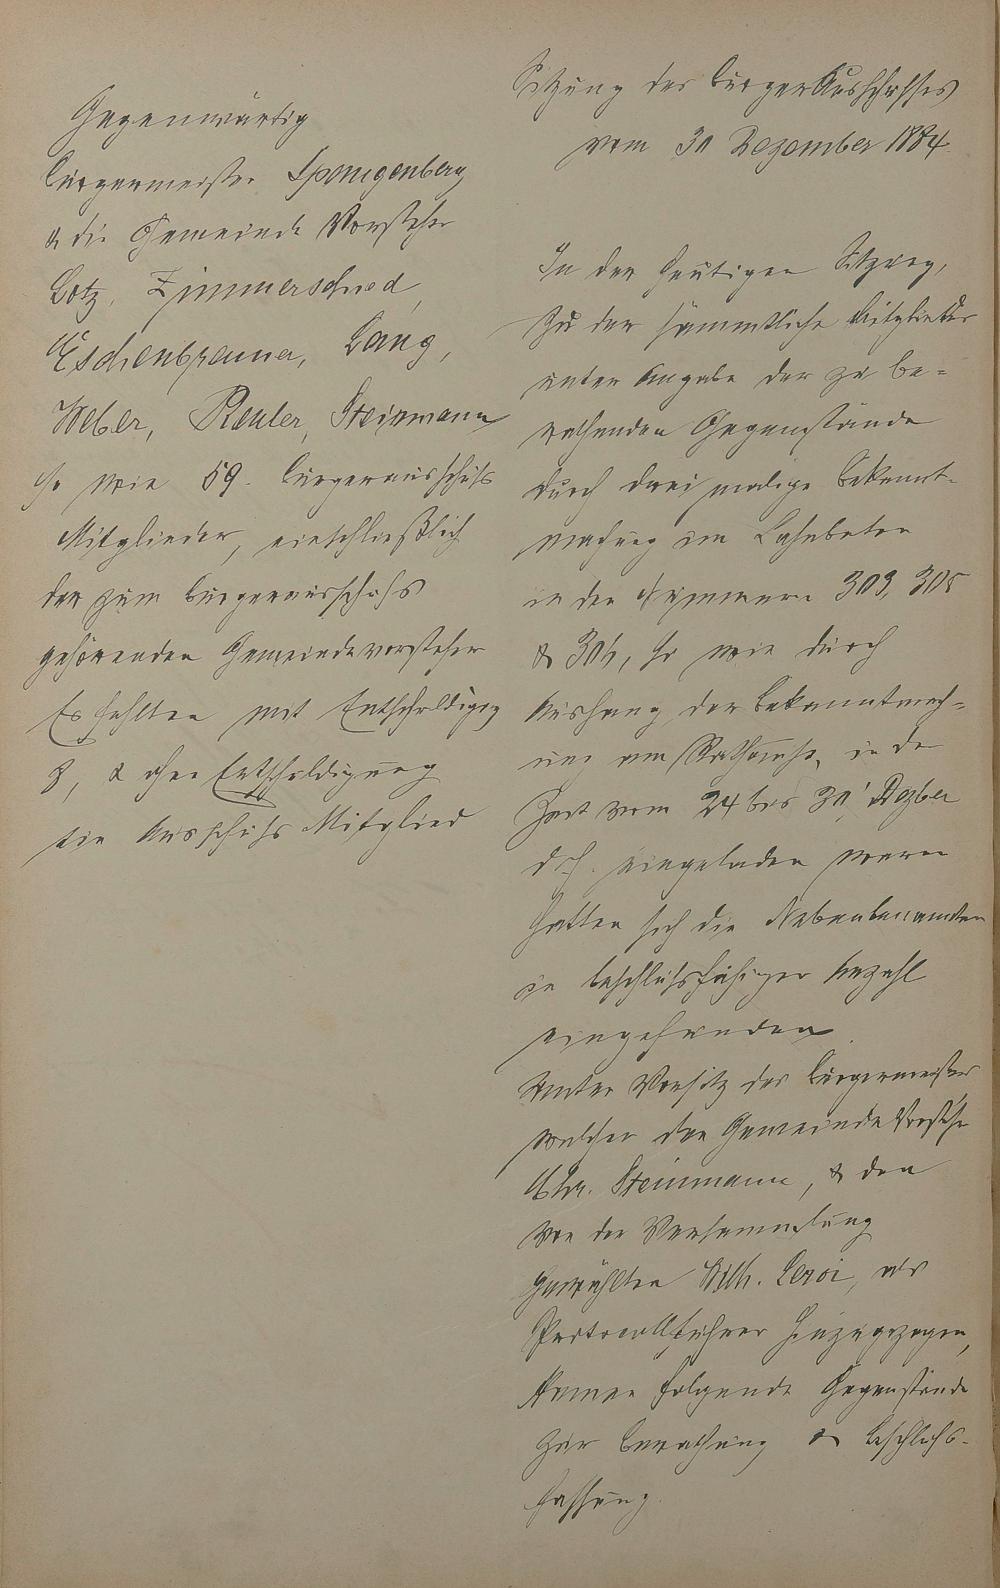 Gegenwärtig
Bürgermeister Spangenberg
& die Gemeinde Vorsteher
Lotz, Zimmerschied,
Eschenbrenner, Lang,
Weber, Reuler, Steinmann
so wie 59. Bürgerausschuss
Mitglieder, einschließlich
der zum Bürgerausschuss
gehörenden Gemeindevorsteher
Es fehlten mit Entschuldigung
8, & ohne Entschuldigung
ein Ausschuss Mitglied
Sitzung des Bürger Ausschusses
vom 31 Dezember 1884.
In der heutigen Sitzung,
zu der sämmtliche Mitglieder
unter Angabe der zu be-
rathenden Gegenstände
durch dreimalige Bekannt-
machung im Lahnboten
in den Nummern 303, 305
& 306, so wie durch
Aushang der Bekanntmach-
ung am Rathause, in der
Zeit vom 24 bis 31 Dezber
d. J. eingeladen waren
hatten sich die Nebenbenannten
in beschlussfähiger Anzahl
eingefunden
Unter Vorsitz des Bürgermeisters
welcher den Gemeinde Vorsteher
Chr. Steinmann, & den
von der Versammlung
gewählten Wilh. Leroi, als
Protocollführer hinzugezogen,
kamen folgende Gegenstände
zur Berathung & Beschluss-
fassung.